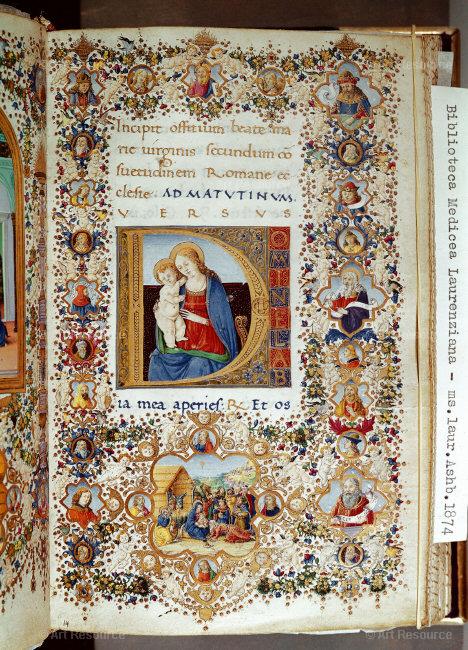 Incipit offitium beate ma
rie uirginis secundum cō
suetudinem Romane ec
clesie. AD MATUTINVM.
VERSUS
D
OMINE LABIA
ia mea aperies. R. Et os
14
Biblioteca Medicea Laurenziana - ms.laur.Ashb.1874
© Art Resource
© Art Resource
© Art Resource